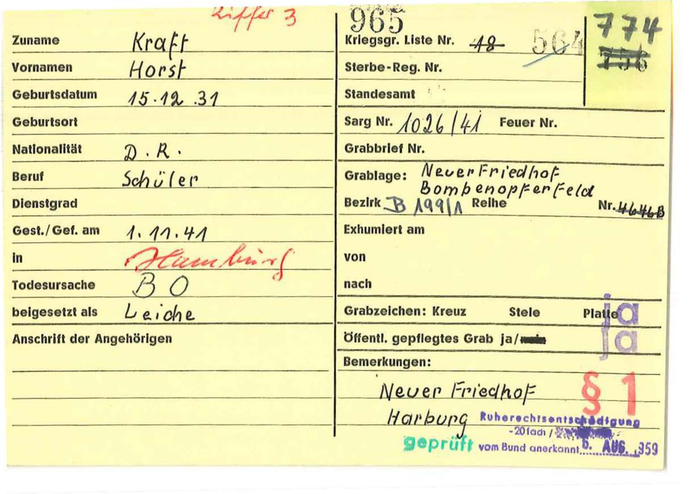 Ziffer 3
Zuname Kraft
Vornamen Horst
Geburtsdatum 15.12.31
Geburtsort
Nationalität D.R.
Beruf Schüler
Dienstgrad
Gest./Gef. am 1.11.41
in Hamburg
Todesursache BO
beigesetzt als Leiche
Anschrift der Angehörigen
965
774
756
Kriegsgr. Liste Nr. 18 564
Sterbe-Reg. Nr.
Standesamt
Sarg Nr. 1026/41 Feuer Nr.
Grabbrief Nr.
Grablage: Neuer Friedhof
Bombenopferfeld
Bezirk B 199/1 Reihe Nr. 4646B
Exhumiert am
von
nach
Grabzeichen: Kreuz Stele Platte ja
Öffentl. gepflegtes Grab ja/nein ja
Bemerkungen:
§ 1
Neuer Friedhof
Harburg
Ruherechtsentschädigung
-20fach /
geprüft vom Bund anerkannt 6. AUG. 1959